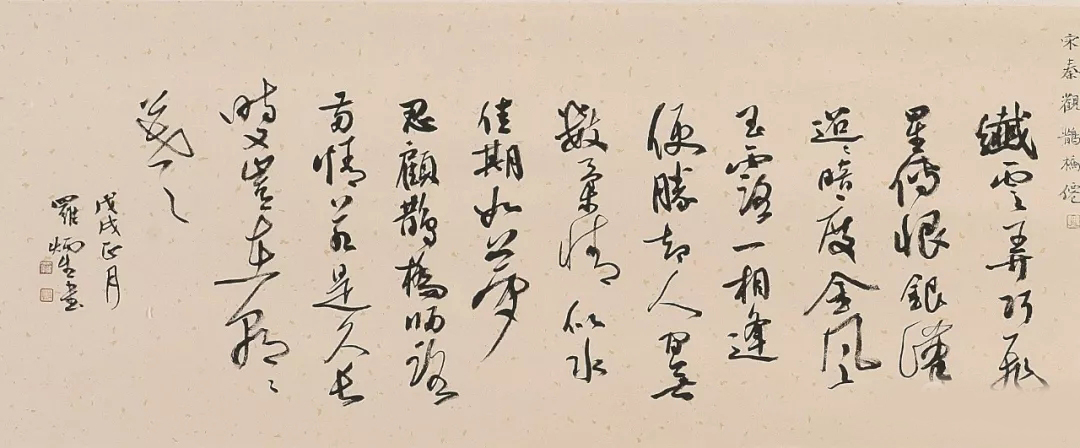 宋秦觀鵲橋僊
纖雲弄巧飛
星傳恨銀漢
迢〻暗度金風
玉露一相逢
便勝却人間無
數柔情似水
佳期如夢
忍顧鵲橋歸路
兩情若是久長
時又豈在朝〻
暮〻
戊戌正月
羅炳生書